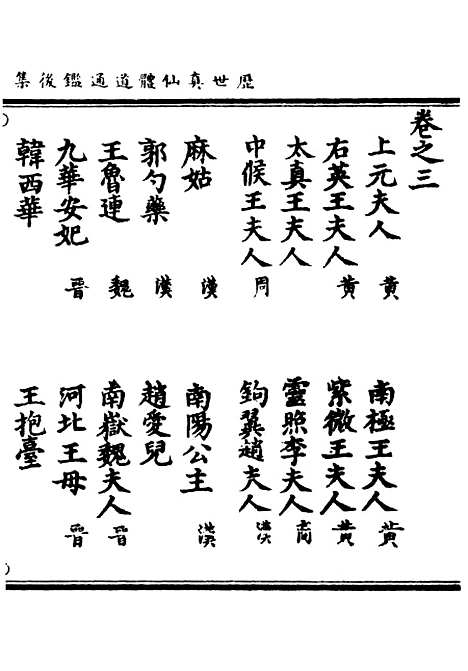 歷世真仙體道通鑑後集
卷之三
上元夫人 黃 南極王夫人 黃
右英王夫人 黃 紫微王夫人 黃
太真王夫人 靈照李夫人 商
中候王夫人 周 鉤翼趙夫人 漢
麻姑 漢 南陽公主 漢
郭勺藥 漢 趙愛兒
王魯連 魏 南嶽魏夫人 晉
九華安妃 晉 河北王母 晉
韓西華 王抱臺